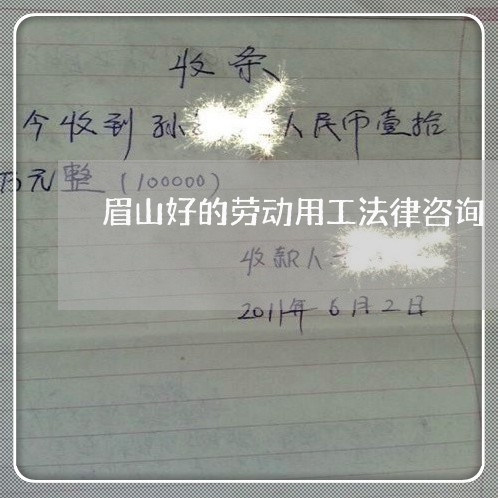 收条
今收到孙 人民币壹拾
万元整（100000）
眉山好的劳动用工法律咨询
收款人
2011年6月2日